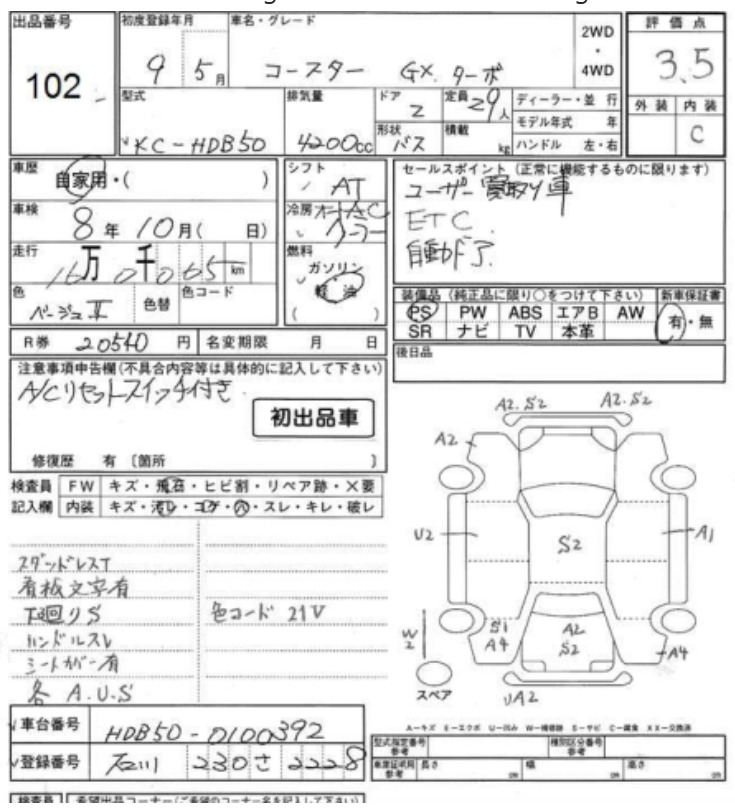 出品番号
102
初度登録年月
9 5月
車名・グレード
コースター GX ターボ
2WD
・
4WD
評価点
3.5
外装 内装
C
型式
KC-HDB50
排気量
4200cc
ドア
2
形状
バス
定員 29人
積載 kg
ディーラー・並行
モデル年式 年
ハンドル 左・右
車歴
自家用・( )
車検
8年 10月( 日)
走行
16万0千065km
色
ベージュII
色替
色コード
シフト
AT
冷房
オートAC
クーラー
燃料
ガソリン
軽油
( )
セールスポイント (正常に機能するものに限ります)
ユーザー買取り車
ETC
自動ドア
装備品 (純正品に限り○をつけて下さい)
PS PW ABS エアB AW
SR ナビ TV 本革
新車保証書
有・無
R券 20540 円
名変期限 月 日
後日品
注意事項申告欄(不具合内容等は具体的に記入して下さい)
A/Cリセットスイッチ付き
初出品車
修復歴 有 〔箇所 〕
検査員
記入欄
FW キズ・飛石・ヒビ割・リペア跡・X要
内装 キズ・汚レ・コゲ・穴・スレ・キレ・破レ
スタッドレスT
看板文字有
下廻りS
色コード 21V
ハンドルスレ
シートカバー有
各 A.U.S
A2.S2
A2.S2
A2
U2
S2
A1
W2
S1
A4
A2
S2
A4
スペア
UA2
車台番号
HDB50-0100392
登録番号
石川 230さ2228
A-キズ E-エクボ U-凹み W-補修跡 S-サビ C-腐食 XX-交換済
型式指定番号
参考
種別区分番号
参考
車庫証明用
参考
長さ cm
幅 cm
高さ cm
検査員
希望出品コーナー(ご希望のコーナー名を記入して下さい)